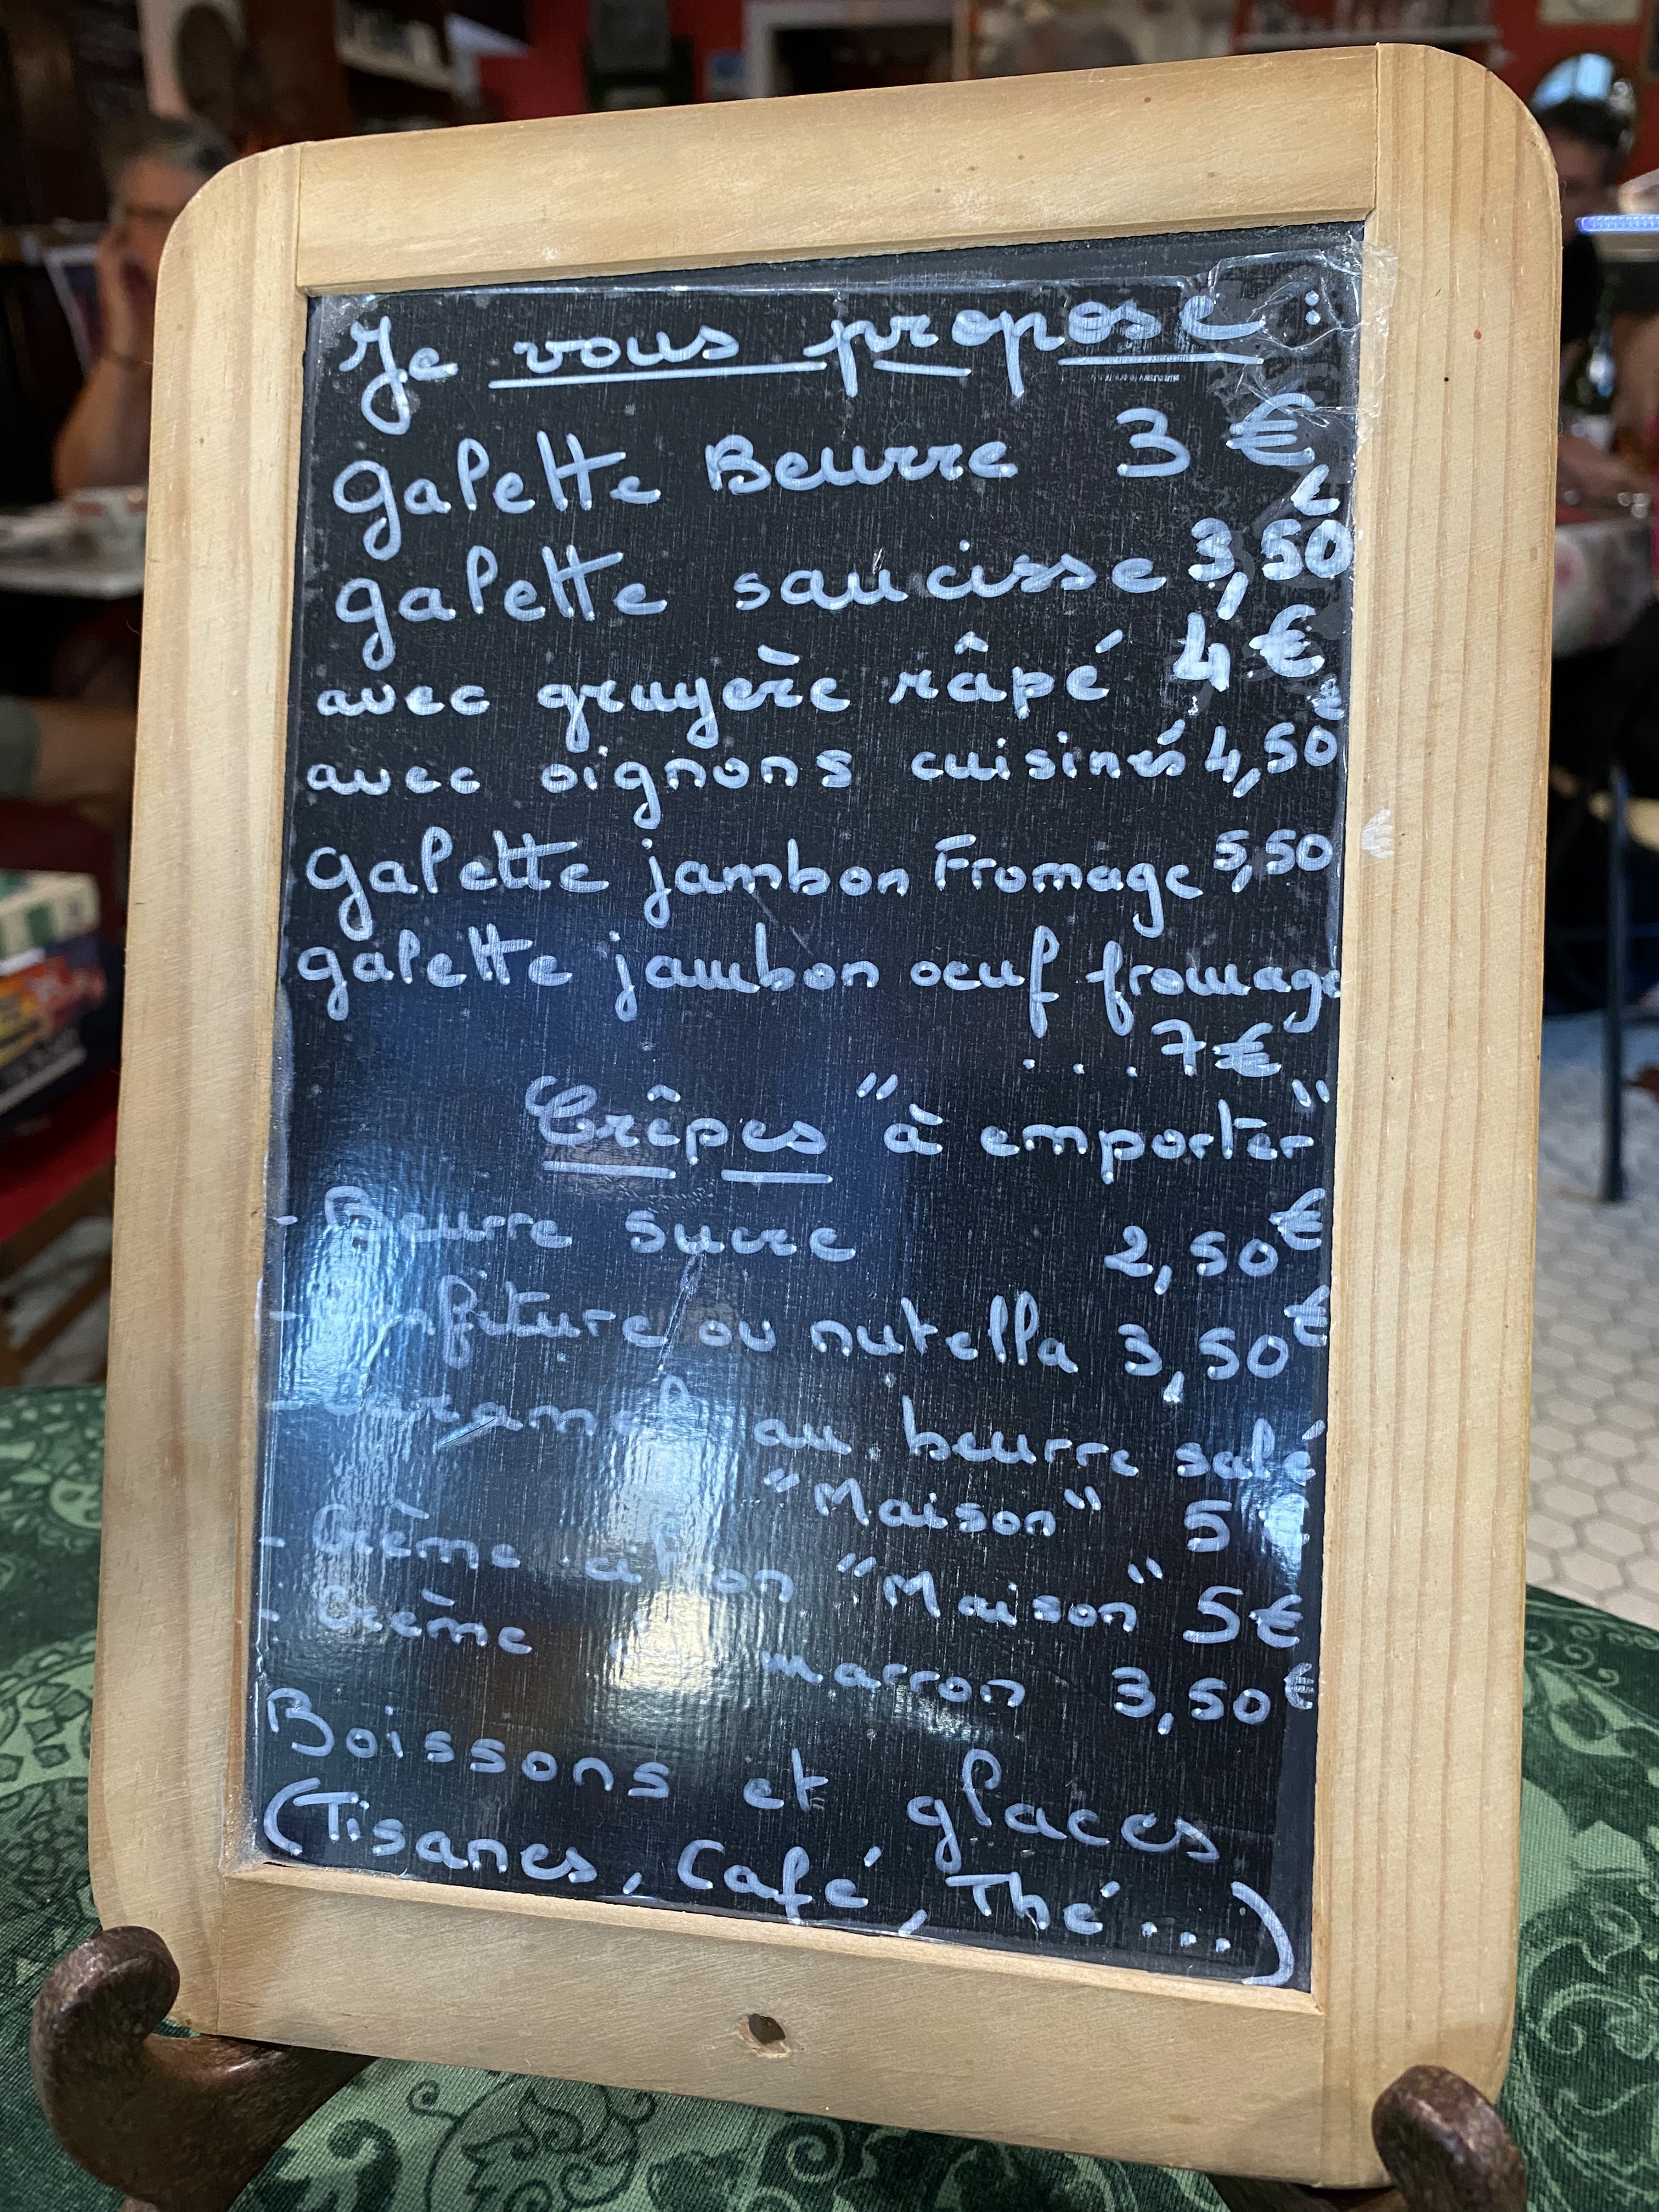 Je vous propose :
galette Beurre 3 €
galette saucisse 3,50 €
avec gruyère râpé 4 €
avec oignons cuisinés 4,50 €
galette jambon Fromage 5,50
galette jambon oeuf fromage
... 7 €
Crêpes "à emporter"
- Beurre Sucre 2,50 €
- confiture ou nutella 3,50 €
- caramel au beurre salé
"Maison" 5 €
- Crème citron "Maison" 5 €
- Crème marron 3,50 €
Boissons et glaces
(Tisanes, Café, Thé...)